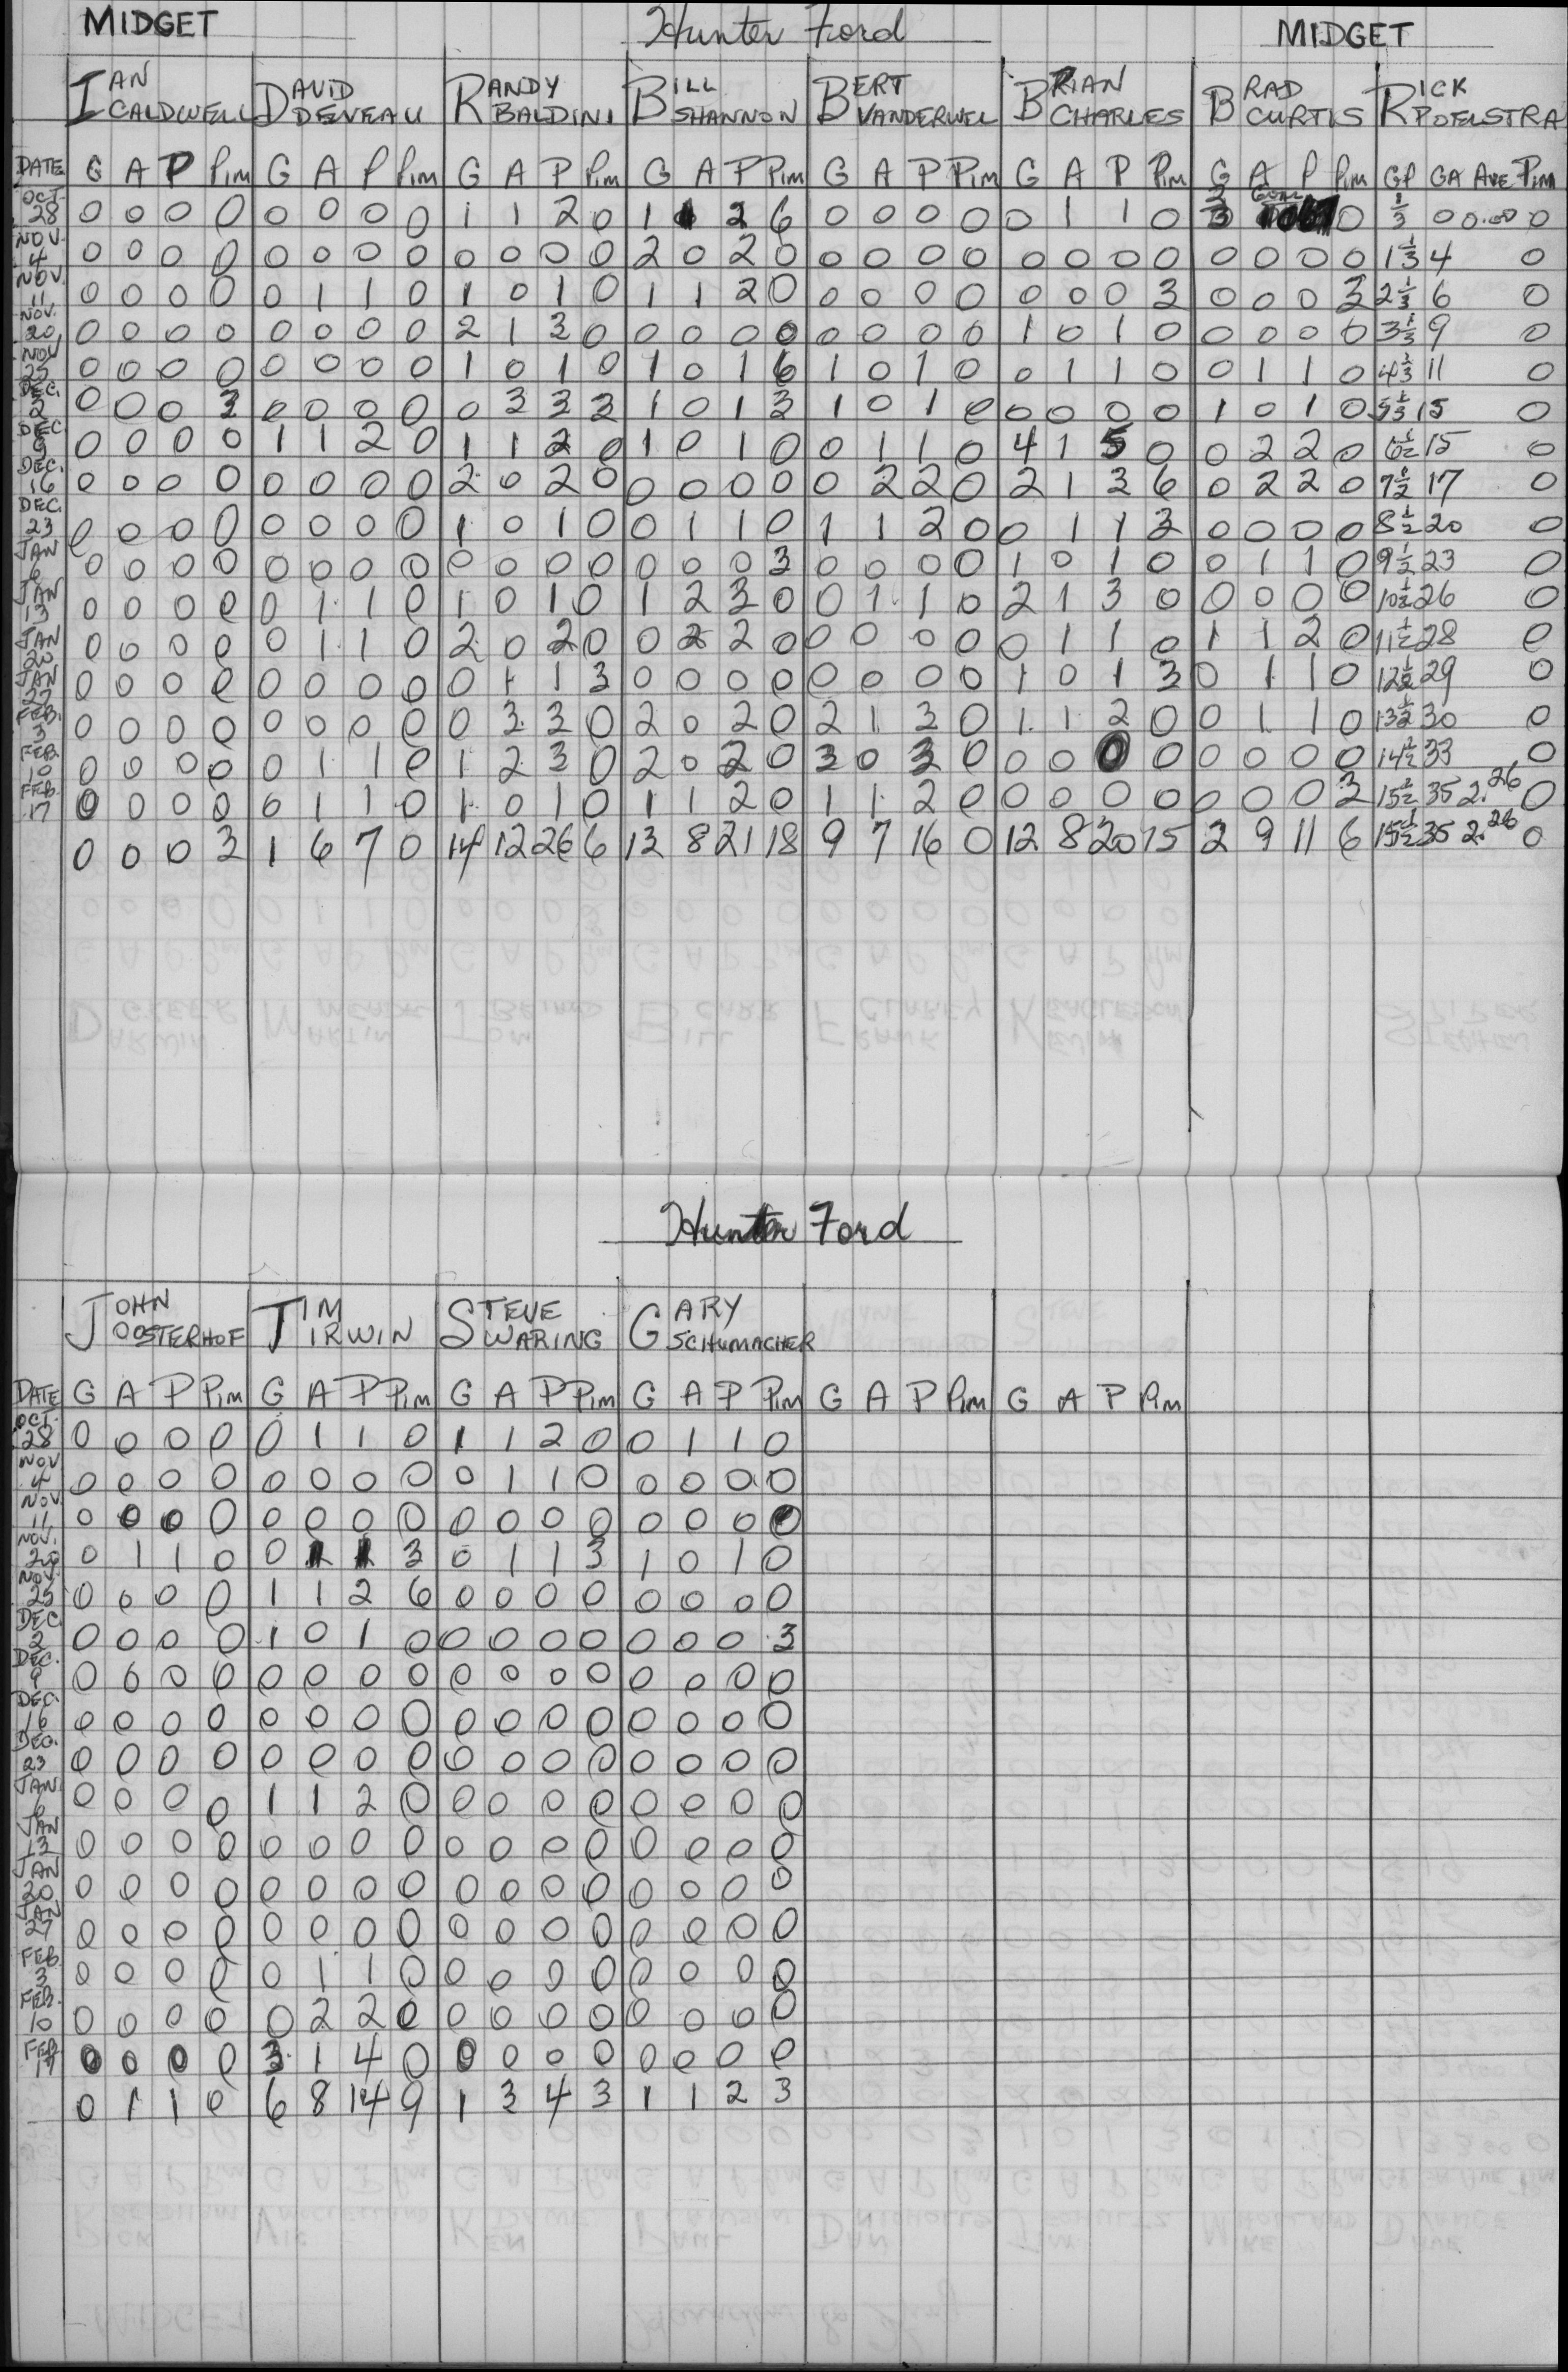 MIDGET Hunter Ford MIDGET
IAN CALDWELL DAVID DEVEAU RANDY BALDINI BILL SHANNON BERT VANDERWEL BRIAN CHARLES BRAD CURTIS RICK POELSTRA
DATE G A P Pim G A P Pim G A P Pim G A P Pim G A P Pim G A P Pim G A P Pim GP GA AVE Pim
OCT. 28 0 0 0 0 0 0 0 0 1 1 2 0 1 1 2 6 0 0 0 0 0 1 1 0 0 1/3 0 0.00 0
NOV. 4 0 0 0 0 0 0 0 0 0 0 0 0 2 0 2 0 0 0 0 0 0 0 0 0 0 0 0 0 1 1/3 4 0
NOV. 11 0 0 0 0 0 1 1 0 1 0 1 0 1 1 2 0 0 0 0 0 0 0 0 3 0 0 0 3 2 1/3 6 0
NOV. 20 0 0 0 0 0 0 0 0 2 1 3 0 0 0 0 0 0 0 0 0 1 0 1 0 0 0 0 0 3 1/3 9 0
NOV 25 0 0 0 0 0 0 0 0 1 0 1 0 1 0 1 6 1 0 1 0 0 1 1 0 0 1 1 0 4 1/3 11 0
DEC. 2 0 0 0 3 0 0 0 0 0 3 3 3 1 0 1 3 1 0 1 0 0 0 0 0 1 0 1 0 5 1/3 15 0
DEC 9 0 0 0 0 1 1 2 0 1 1 2 0 1 0 1 0 0 1 1 0 4 1 5 0 0 2 2 0 6 1/2 15 0
DEC. 16 0 0 0 0 0 0 0 0 2 0 2 0 0 0 0 0 0 2 2 0 2 1 3 6 0 2 2 0 7 1/2 17 0
DEC. 23 0 0 0 0 0 0 0 0 1 0 1 0 0 1 1 0 1 1 2 0 0 1 1 3 0 0 0 0 8 1/2 20 0
JAN 6 0 0 0 0 0 0 0 0 0 0 0 0 0 0 0 3 0 0 0 0 1 0 1 0 0 1 1 0 9 1/2 23 0
JAN 13 0 0 0 0 0 1 1 0 1 0 1 0 1 2 3 0 0 1 1 0 2 1 3 0 0 0 0 0 10 1/2 26 0
JAN 20 0 0 0 0 0 1 1 0 2 0 2 0 0 2 2 0 0 0 0 0 0 1 1 0 1 1 2 0 11 1/2 28 0
JAN 27 0 0 0 0 0 0 0 0 0 1 1 3 0 0 0 0 0 0 0 0 1 0 1 3 0 1 1 0 12 1/2 29 0
FEB. 3 0 0 0 0 0 0 0 0 0 3 3 0 2 0 2 0 2 1 3 0 1 1 2 0 0 1 1 0 13 1/2 30 0
FEB. 10 0 0 0 0 0 1 1 0 1 2 3 0 2 0 2 0 3 0 3 0 0 0 0 0 0 0 0 0 14 1/2 33 0
FEB. 17 0 0 0 0 0 1 1 0 1 0 1 0 1 1 2 0 1 1 2 0 0 0 0 0 0 0 0 3 15 1/2 35 2.26 0
0 0 0 3 1 6 7 0 14 12 26 6 13 8 21 18 9 7 16 0 12 8 20 15 2 9 11 6 15 1/2 35 2.26 0
Hunter Ford
JOHN OOSTERHOF TIM IRWIN STEVE WARING GARY SCHUMACHER
DATE G A P Pim G A P Pim G A P Pim G A P Pim G A P Pim G A P Pim
OCT. 28 0 0 0 0 0 1 1 0 1 1 2 0 0 1 1 0
NOV 4 0 0 0 0 0 0 0 0 0 1 1 0 0 0 0 0
NOV 11 0 0 0 0 0 0 0 0 0 0 0 0 0 0 0 0
NOV. 20 0 1 1 0 0 1 1 3 0 1 1 3 1 0 1 0
NOV. 25 0 0 0 0 1 1 2 6 0 0 0 0 0 0 0 0
DEC 2 0 0 0 0 1 0 1 0 0 0 0 0 0 0 0 3
DEC. 9 0 0 0 0 0 0 0 0 0 0 0 0 0 0 0 0
DEC. 16 0 0 0 0 0 0 0 0 0 0 0 0 0 0 0 0
DEC. 23 0 0 0 0 0 0 0 0 0 0 0 0 0 0 0 0
JAN. 6 0 0 0 0 1 1 2 0 0 0 0 0 0 0 0 0
JAN 13 0 0 0 0 0 0 0 0 0 0 0 0 0 0 0 0
JAN 20 0 0 0 0 0 0 0 0 0 0 0 0 0 0 0 0
JAN 27 0 0 0 0 0 0 0 0 0 0 0 0 0 0 0 0
FEB 3 0 0 0 0 0 1 1 0 0 0 0 0 0 0 0 0
FEB. 10 0 0 0 0 0 2 2 0 0 0 0 0 0 0 0 0
FEB 17 0 0 0 0 3 1 4 0 0 0 0 0 0 0 0 0
0 1 1 0 6 8 14 9 1 3 4 3 1 1 2 3